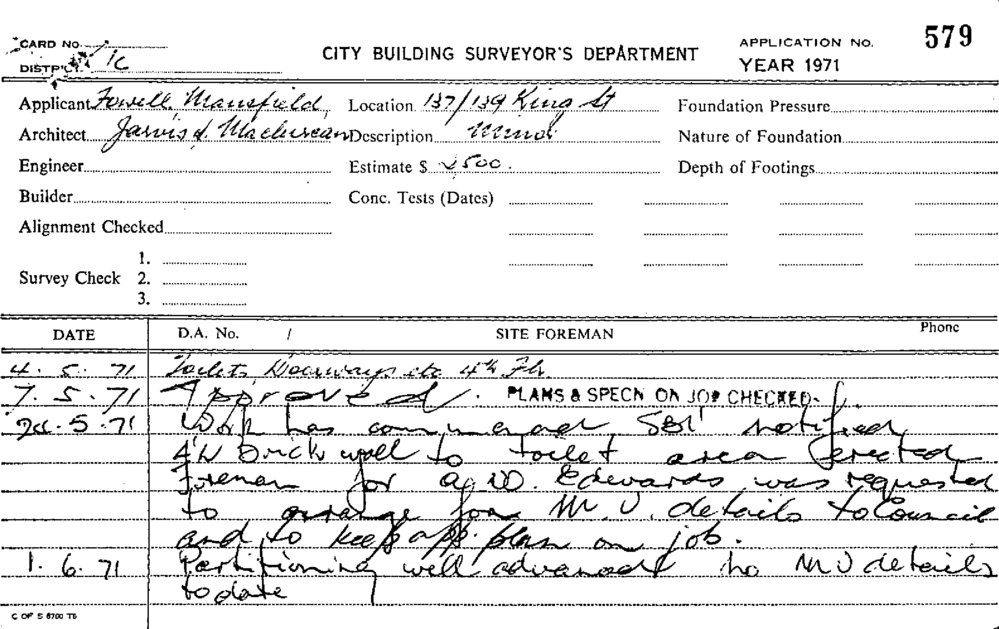 CARD NO.
DISTRICT 1C
CITY BUILDING SURVEYOR'S DEPARTMENT
APPLICATION NO. 579
YEAR 1971
Applicant Fowell Mansfield Location 137/139 King St Foundation Pressure
Architect Jarvis & Maclurcan Description Minor Nature of Foundation
Engineer Estimate $ 500. Depth of Footings
Builder Conc. Tests (Dates)
Alignment Checked
1.
Survey Check 2.
3.
DATE D.A. No. / SITE FOREMAN Phone
4. 5. 71 Toilets Doorways etc 4th Flr.
7. 5. 71 Approved. PLANS & SPECN ON JOB CHECKED.
24. 5. 71 Work has commenced notified
brick wall to toilet area erected
Foreman for Edwards was requested
to arrange for M.V. details to Council
and to keep app. plan on job.
1. 6. 71 Partitioning well advanced no M V details
to date
C OF S 6700 TS